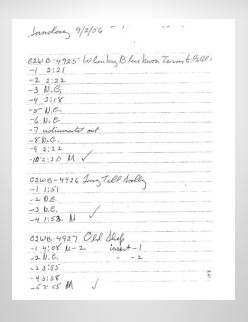 Sunday 9/2/56
G2WB-4925 When My Blue Moon Turns to Gold
-1 2:21
-2 2:22
-3 N.G.
-4 2:18
-5 N.G.
-6 N.G.
-7 out
-8 N.G.
-9 2:22
-10 2:20 M ✓
G2WB-4926 Long Tall Sally
-1 1:51
-2 N.G.
-3 N.G.
-4 1:53 M ✓
G2WB-4927 Old Shep
-1 4:08 M-2 insert -1
-2 N.G. " -2
-3 3:55
-4 3:58
-5 3:55 M ✓